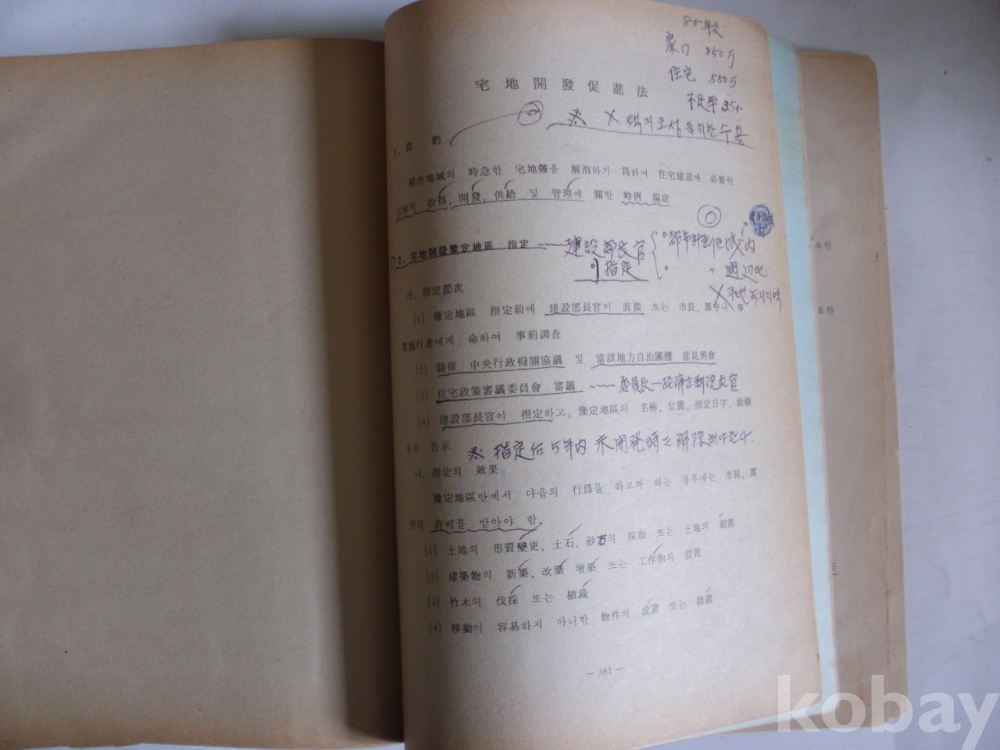 85年度
家口 850万
住宅 550万
不足率 35%
宅地開發促進法
1. 目 的
※ × 택지조성을위한 수용
都市地域의 時急한 宅地難을 解消하기 爲하여 住宅建設에 必要한
宅地의 取得, 開發, 供給 및 管理에 關한 特例 規定
2. 宅地開發豫定地區 指定 建設部長官 都市計劃區域內
이 指定 〃 周辺地
가. 指定節次
(1) 豫定地區 指定前에 建設部長官이 直接 또는 市長, 郡守나 事
業施行者에게 命하여 事前調査
(2) 關係 中央行政機關協議 및 當該地方自治團體 意見照會
(3) 住宅政策審議委員會 審議 委員長
(4) 建設部長官이 指定하고, 豫定地區의 名稱, 位置, 指定日字, 面積
등을 告示 ※ 指定后 5年内 未開発時는 解除되야한다.
나. 指定의 效果
豫定地區안에서 다음의 行爲를 하고자 하는 경우에는 市長, 郡
守의 許可를 받아야 함.
(1) 土地의 形質變更, 土石, 砂石의 採取 또는 土地의
(2) 建築物의 新築, 改築 增築 또는 工作物의 設置
(3) 竹木의 伐採 또는 植栽
(4) 移動이 容易하지 아니한 物件의 設置 또는 積置
- 381 -
요한
요한
kobay